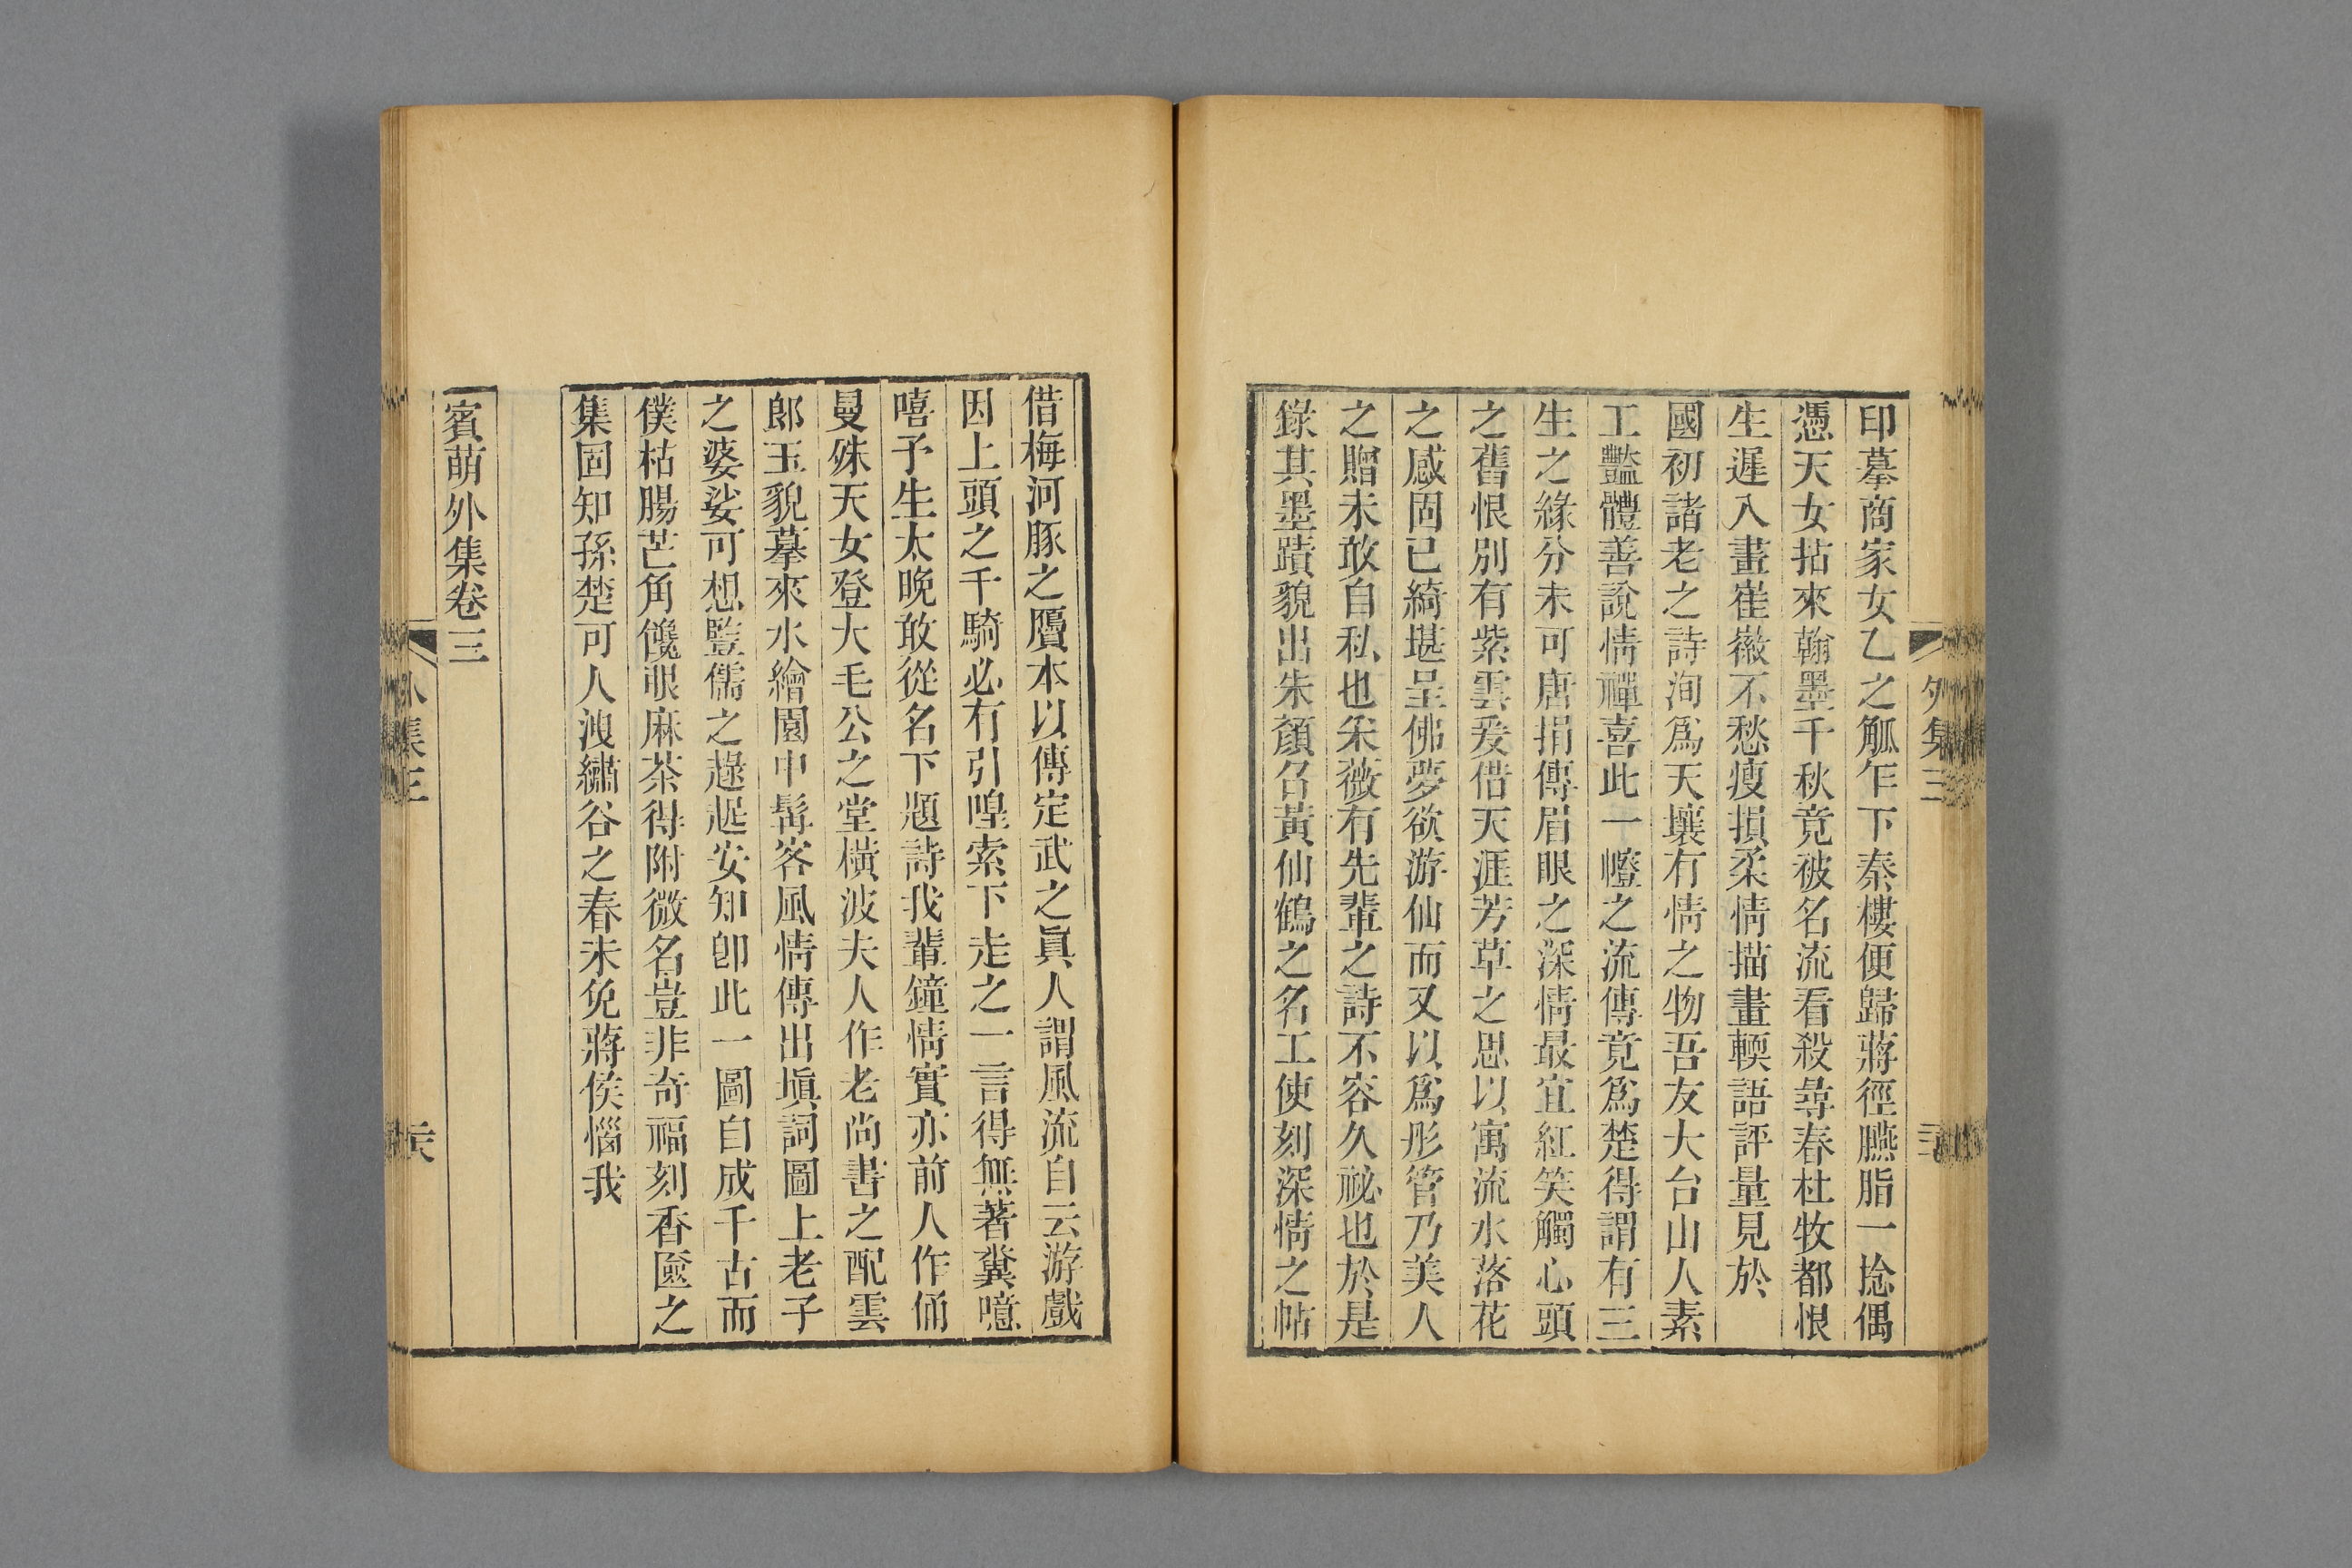 印摹商家女乙之觚乍下秦樓便歸蔣徑臙脂一捻偶
憑天女拈來翰墨千秋竟被名流看殺尋春杜牧都恨
生遲入畫崔徽不愁瘦損柔情描畫輭語評量見於
國初諸老之詩洵爲天壤有情之物吾友大台山人素
工豔體善說情禪喜此一㡧之流傳竟爲楚得謂有三
生之緣分未可唐捐傳眉眼之深情最宜紅笑觸心頭
之舊恨別有紫雲爰借天涯芳草之思以寓流水落花
之感固已綺堪呈佛夢欲游仙而又以爲彤管乃美人
之贈未敢自私也朱薇有先輩之詩不容久祕也於是
錄其墨蹟貌出朱顏召黃仙鶴之名工使刻深情之帖
外集三
借梅河豚之贗本以傳定武之眞人謂風流自云游戲
因上頭之千騎必有引喤索下走之一言得無著糞噫
嘻予生太晚敢從名下題詩我輩鐘情實亦前人作俑
曼殊天女登大毛公之堂橫波夫人作老尚書之配雲
郎玉貌摹來水繪園中髯客風情傳出塡詞圖上老子
之婆娑可想豎儒之趢起安知卽此一圖自成千古而
僕枯腸芒角饞眼麻茶得附微名豈非奇福刻香匳之
集固知孫楚可人洩繡谷之春未免蔣侯惱我
賓萌外集卷三
外集三